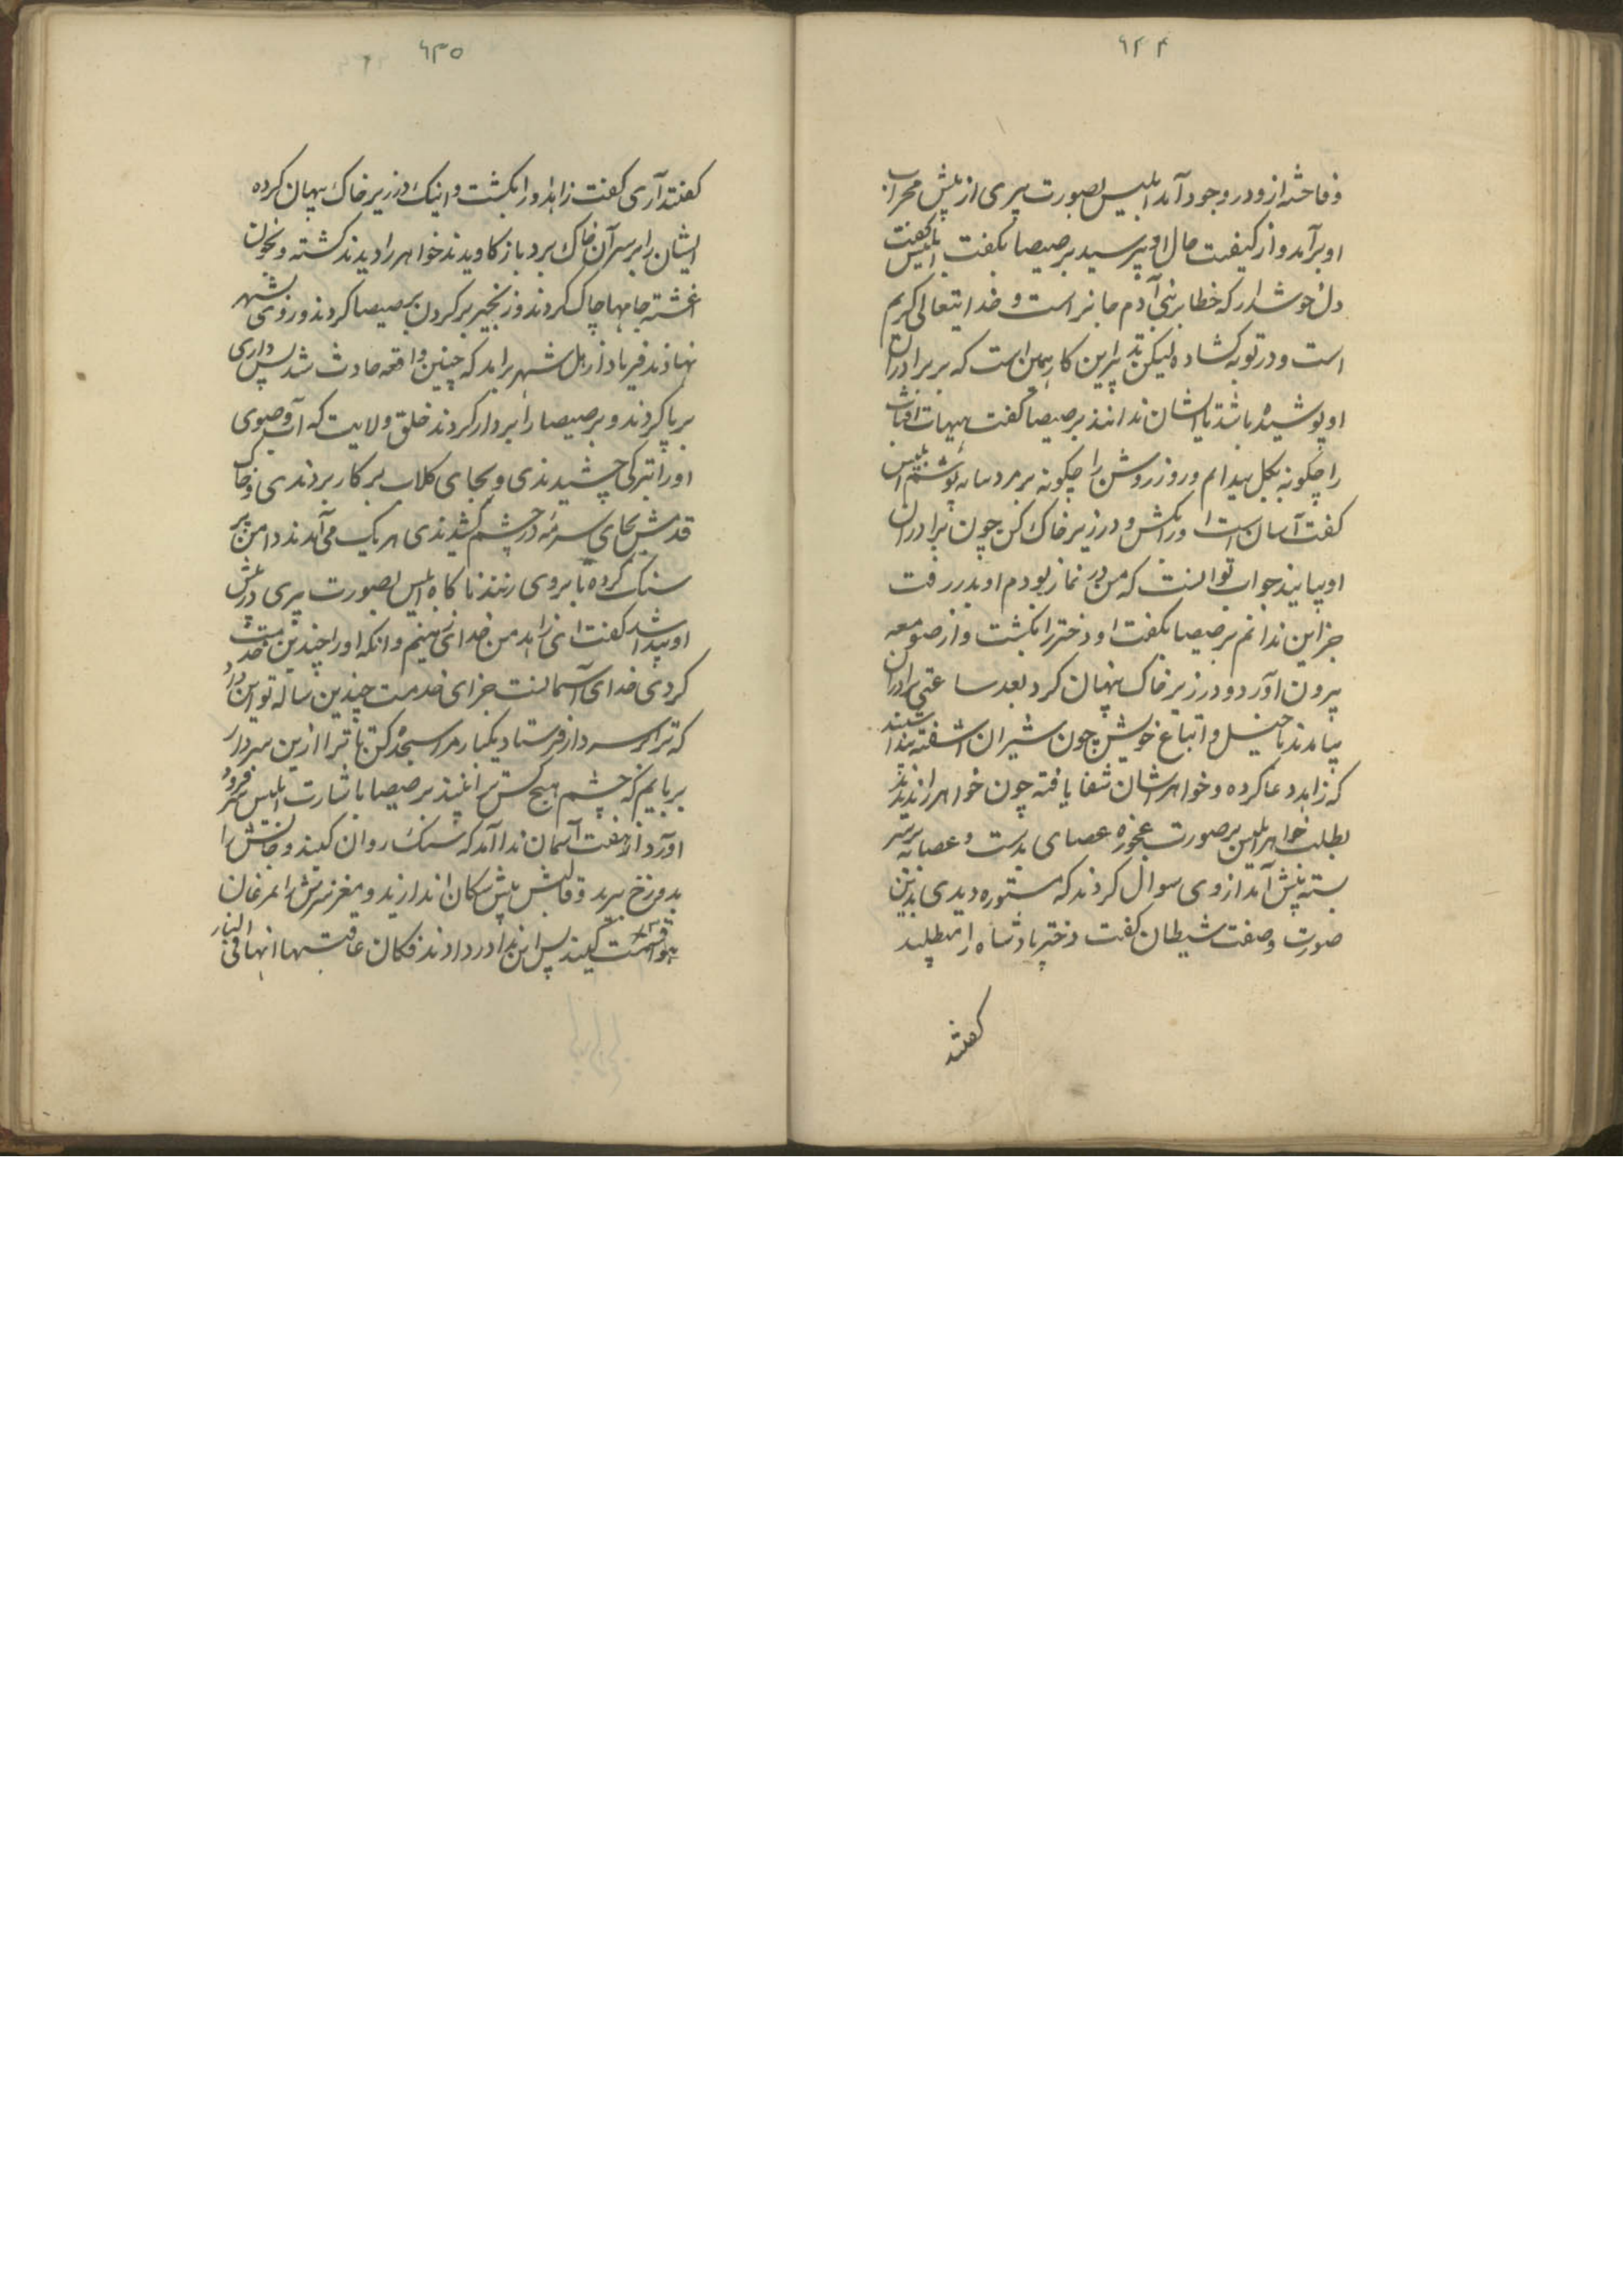 ۶۳۴
و فاحشه ازو در وجود آمد ابلیس بصورت پیری از پیش محراب
او برآمد و از کیفیت حال او بپرسید برصیصا بگفت ابلیس گفت
دل خوشدار که خطا بر بنی آدم جایز است و خدایتعالی کریم
است و در توبه کشاده لیکن تدبیر این کار همین است که بر برادران
او پوشیده باشد تا ایشان ندانند برصیصا گفت هیهات آفتاب
را چکونه بکل بیندایم و روز روشن را چکونه بر مردمانه پوشم ابلیس
گفت آسان است او را بکش و در زیر خاک کن چون برادران
او بیایند جواب تو اینست که من در نماز بودم او بدر رفت
جز این ندانم برصیصا بگفت او دختر را بکشت و از صومعه
بیرون آورد و در زیر خاک پنهان کرد بعد ساعتی برادران
بیامدند با خیل و اتباع خویش چون شیران آشفته پنداشتند
که زاهد دعا کرده و خواهر ایشان شفا یافته چون خواهر را ندیدند
بطلب خواهر ابلیس بر صورت عجوزه عصای بدست و عصابه بر سر
بسته پیش آمد از وی سوال کردند که مستوره دیدی بدین
صورت و صفت شیطان گفت دختر پادشاه را میطلبید
گفتند
۶۳۵
گفتند آری گفت زاهد او را بکشت و اینک در زیر خاک پنهان کرده
ایشان را بر سر آن خاک برد باز کاویدند خواهر را دیدند کشته و بخون
اغشته جامها چاک کردند و زنجیر بر کردن برصیصا کردند و روی بشهر
نهادند فریاد از اهل شهر برآمد که چنین واقعه حادث شد پس داری
برپا کردند و برصیصا را بردار کردند خلق ولایت که آب وضوی
او را بتبرک چشیدندی و بجای کلاب بر کار بردندی و خاک
قدمش بجای سرمه در چشم کشیدندی هر یک می آمدند دامن پر
سنک کرده تا بر وی زنند ناکاه ابلیس بصورت پیری در پیش
او پیدا شد گفت ای زاهد من خدای زمینم و آنکه او را چندین مدت خدمت
کردی خدای آسمانست جزای خدمت چندین ساله تو این داد
که ترا بر سر دار فرستاد یکبار مرا سجده کن تا ترا ازین سر دار
بربایم که چشم هیچ کس ترا نبیند برصیصا باشارت ابلیس سر فرود
آورد از هفت آسمان ندا آمد که سنک روان کنید و جانش را
بدوزخ برید و قالبش پیش سکان اندازید و مغز سرش را بمرغان
هوا قسمت کنید پس این ندا در دادند فکان عاقبتهما انهما فی النار